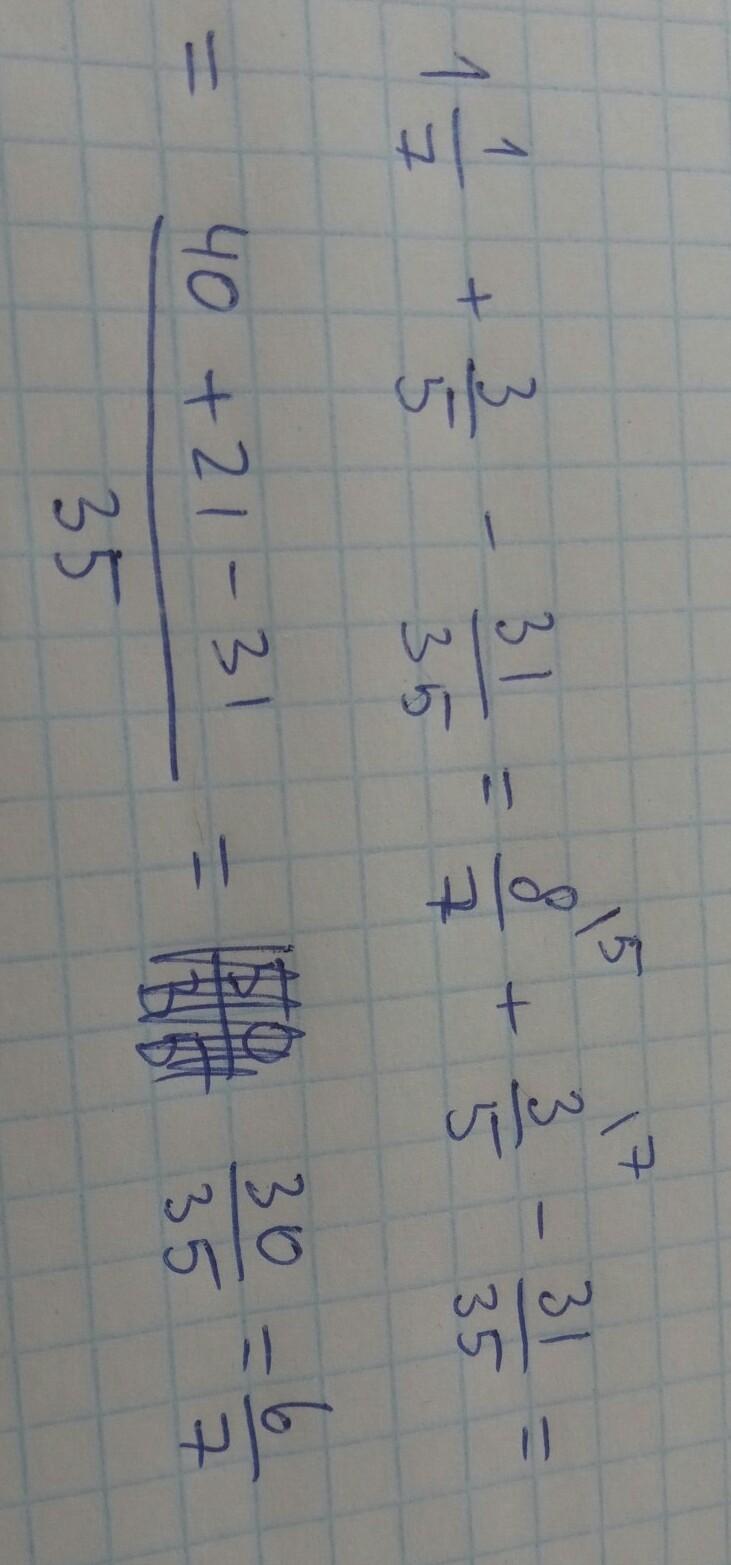 1 1/7 + 3/5 - 31/35 = 8/7 \5 + 3/5 \7 - 31/35 =
= (40 + 21 - 31)/35 = 30/35 = 6/7